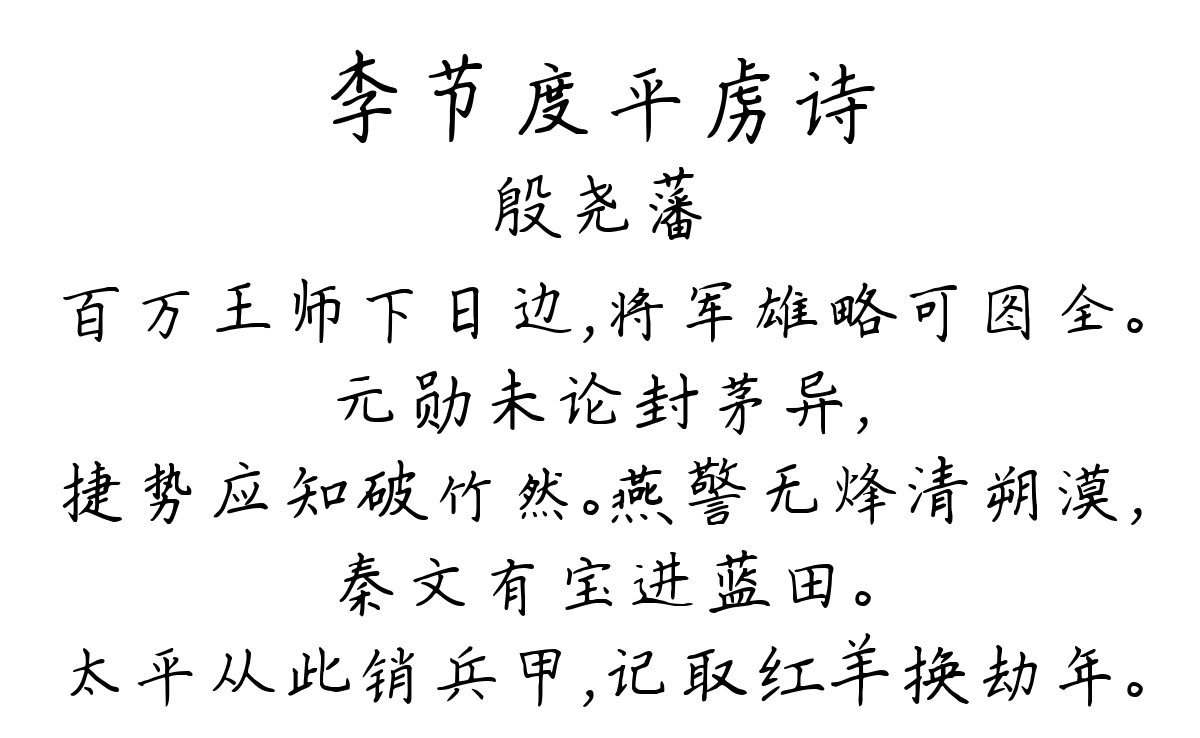 李节度平虏诗
殷尧藩
百万王师下日边,将军雄略可图全。
元勋未论封茅异,
捷势应知破竹然。燕警无烽清朔漠,
秦文有宝进蓝田。
太平从此销兵甲,记取红羊换劫年。